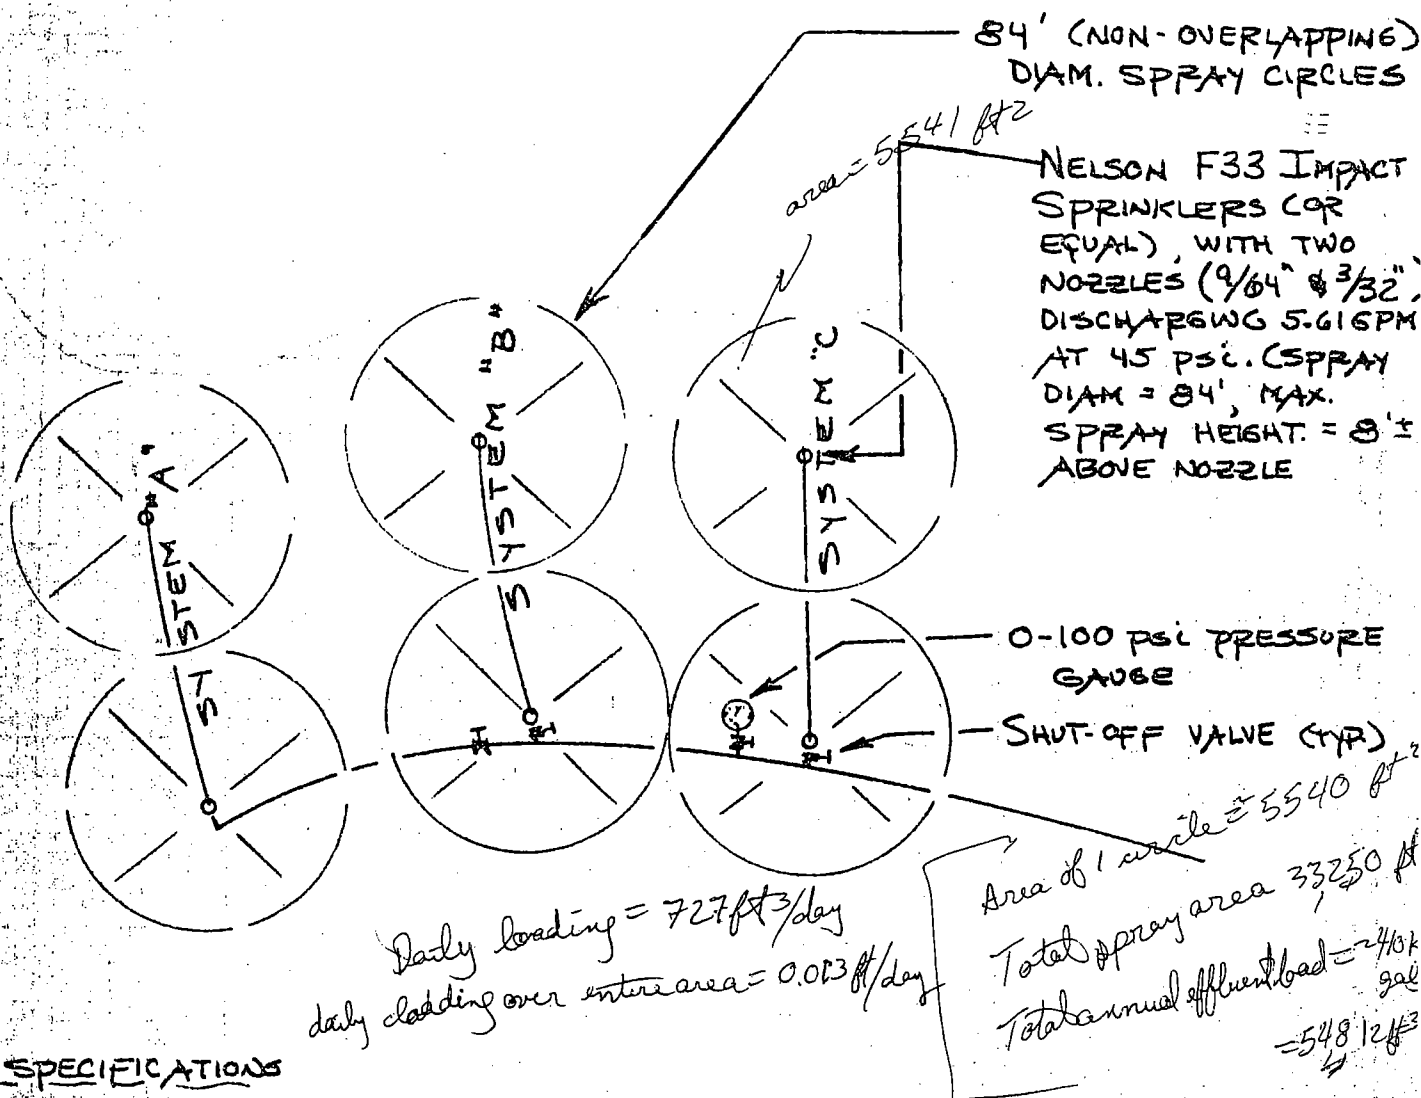 84' (NON-OVERLAPPING)
DIAM. SPRAY CIRCLES
area = 5541 ft2
NELSON F33 IMPACT
SPRINKLERS (OR
EQUAL), WITH TWO
NOZZLES (9/64" & 3/32",
DISCHARGING 5.61GPM
AT 45 psi. (SPRAY
DIAM = 84', MAX.
SPRAY HEIGHT. = 8'±
ABOVE NOZZLE
SYSTEM "A"
SYSTEM "B"
SYSTEM "C
0-100 psi PRESSURE
GAUGE
SHUT-OFF VALVE (TYP.)
Area of 1 circle ≅ 5540 ft2
Total spray area 33,250 ft
Total annual effluent load = ~410k
gal
= 54812 ft3
Daily loading = 727 ft3/day
daily loading over entire area = 0.013 ft/day
SPECIFICATIONS